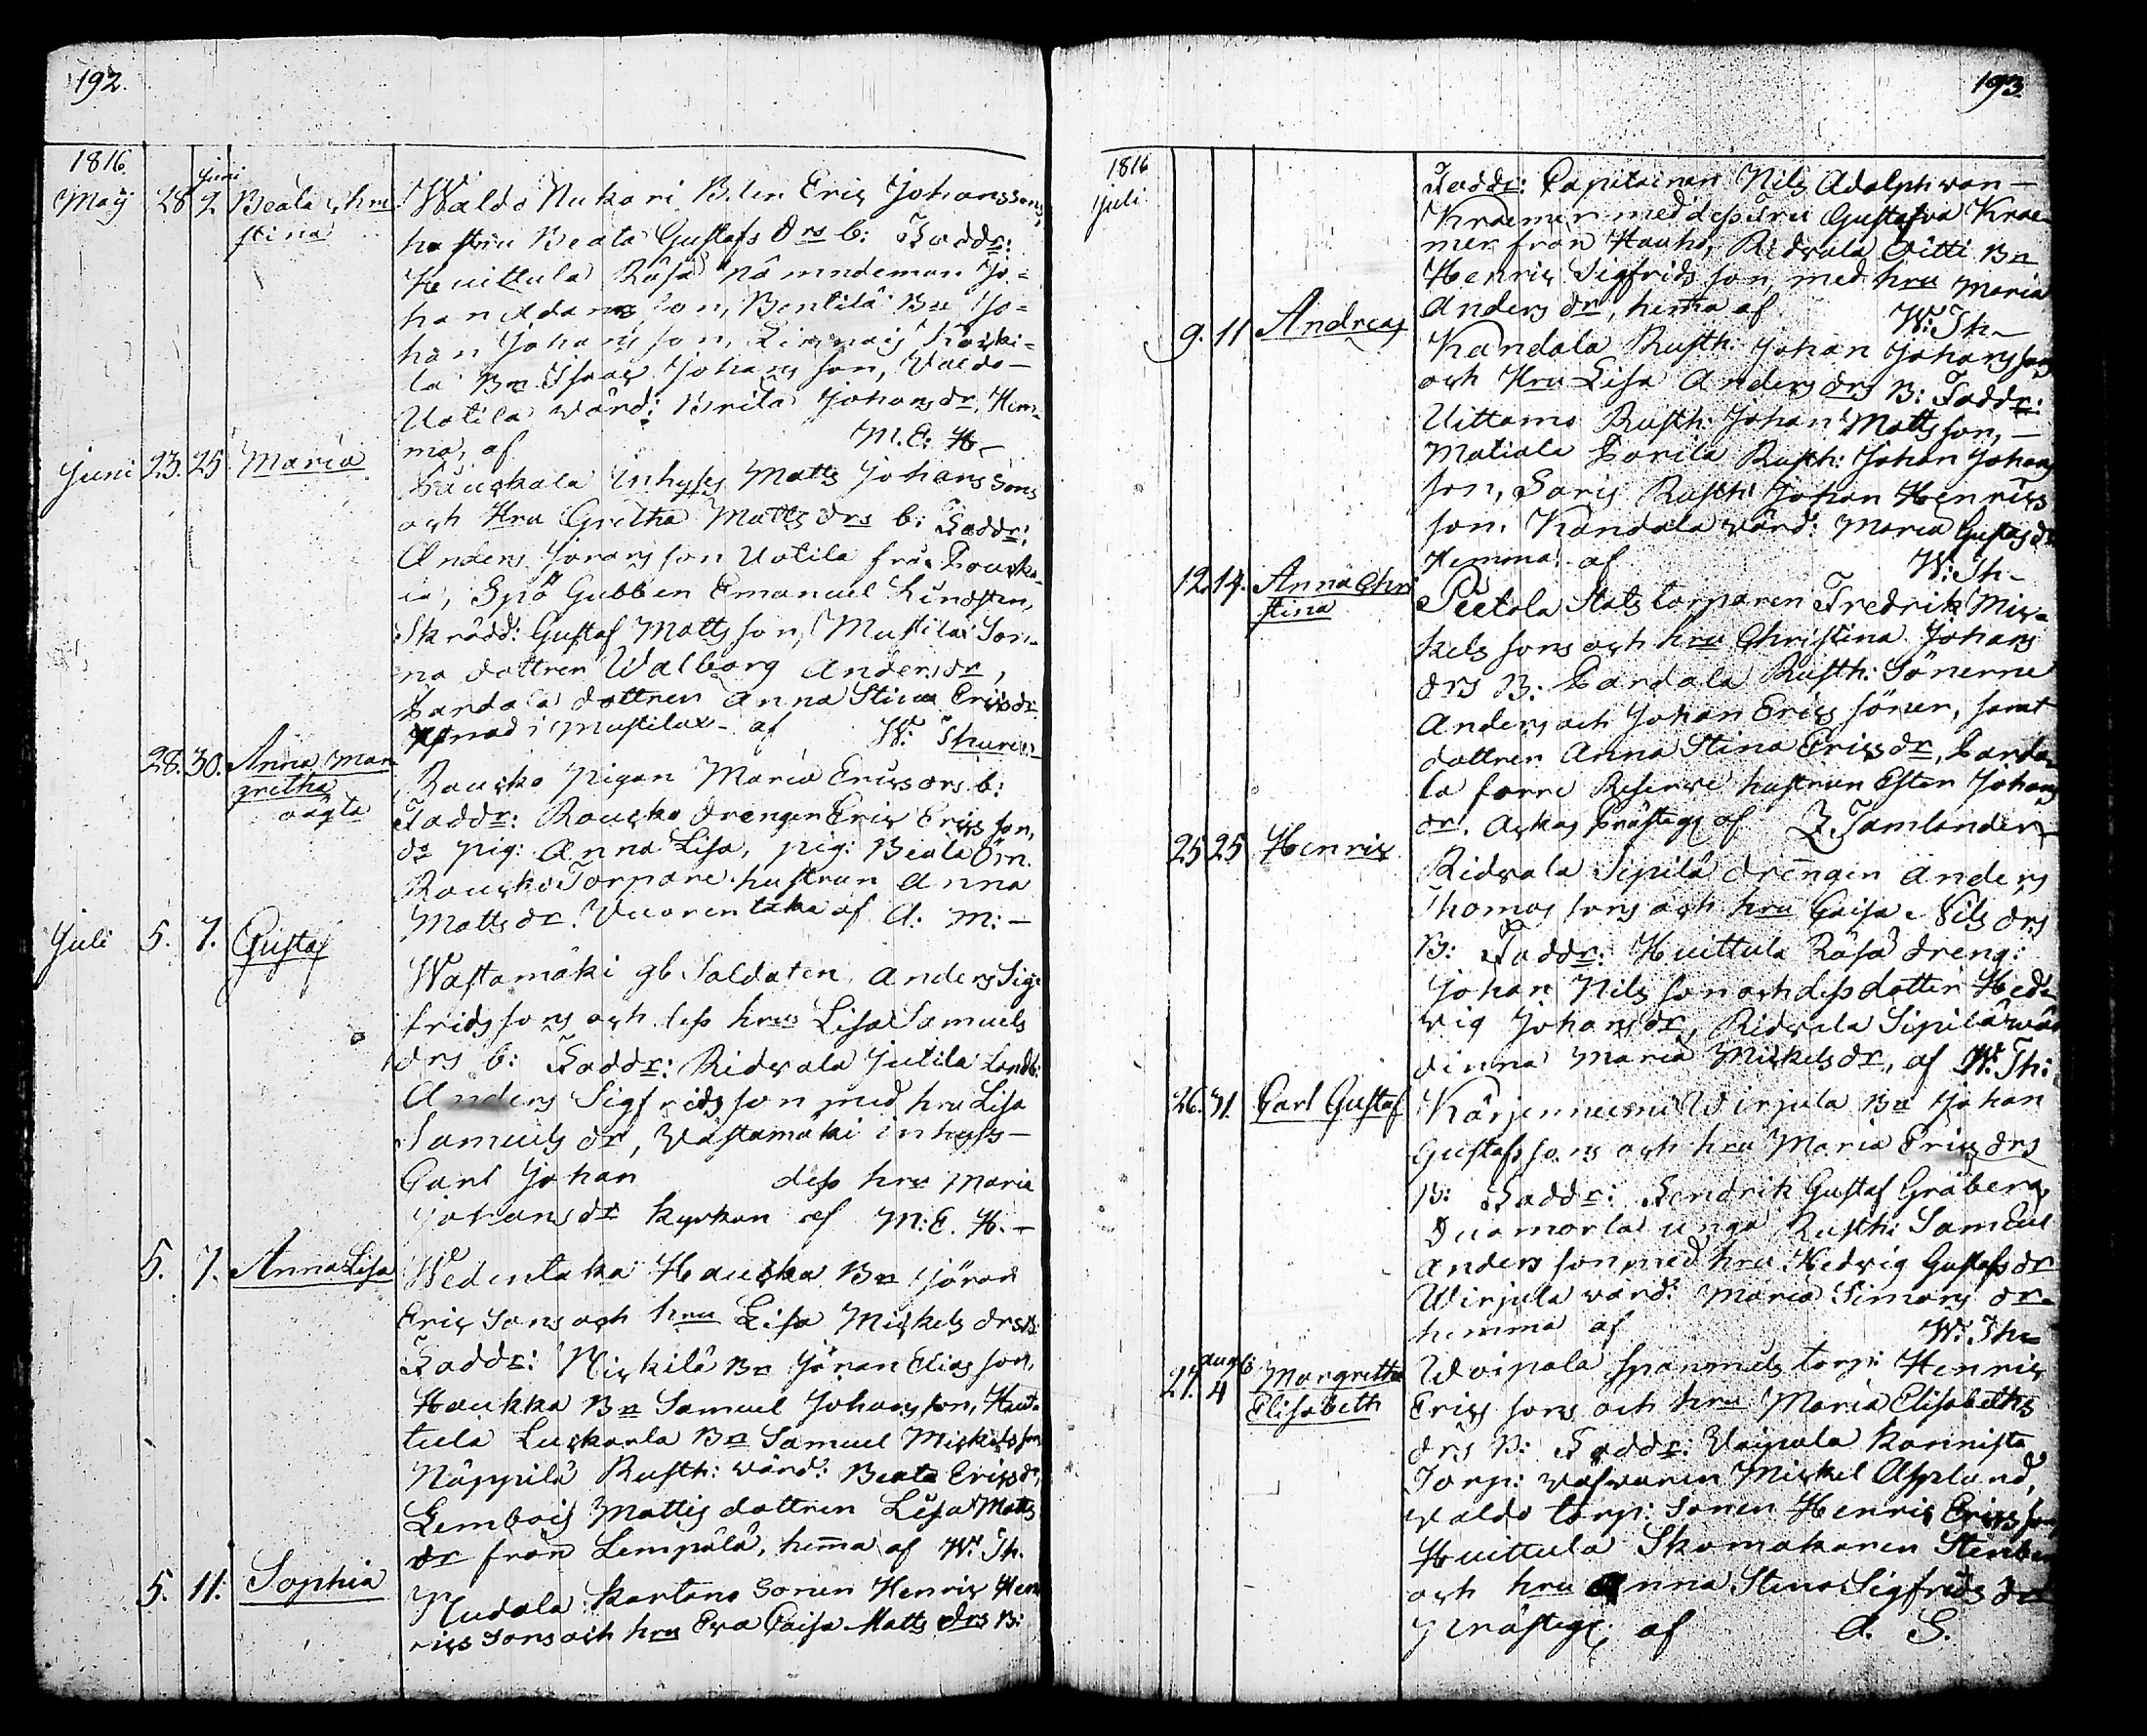 192.
1816.
May 28 Juni 2. Beata Chri
stina
Waldo Nukari B.den Eric Johanssons,
hustru Beata Gustafs drs b: Faddr:
Huittula Räfsä Nämndeman Jo-
han Adamsson, Bentilä Bn Jo-
han Johansson, Koski-
la Bn Isaac Johansson, Valdo-
Uotila värd: Brita Johansdr. Hem-
ma, af M. E. H.
Juni 23. 25. Maria
Inhyses Matts Johanssons
och Hru Gretha Matts drs b: Faddr:
Anders Göransson Uotila från
Gubben Emanuel Lindsten,
Skrädd: Gustaf Mattsson, Mustila Son-
na dottren Walborg Andersdr,
dottren Anna Stina Ericsdr
i Mustila af W: Thuren
28. 30. Anna Mar
gretha
oägta
Rausko Pigan Maria Ericsdrs b:
Faddr: Rausko Drengen Eric Ericsson,
do pig: Anna Lisa, pig: Beata Öm.
Rausko Torpare hustrun Anna
Mattsdr. Vuorentaka af A: M:-
Juli 5. 7. Gustaf
Wastamäki gb. Soldaten Anders Sig-
fridssons och dess hrus Lisa Samuels
drs b: Faddr: Ridvala Jutila Landb:
Anders Sigfridsson med hru Lisa
Samuelsdr, Vastamäki inhyss-
Carl Johan dess hru Maria
Johansdr kyrkan af M: E. H.-
5. 7. Anna Lisa
Wedentaka Hauska Bn Jöran
Ericsons och hru Lisa Mickels drs B:
Faddr: Nickilä Bn Jöran Eliasson,
Haukka Bn Samuel Johansson, Haut-
tula Luskarla Bn Samuel Mickelsson
Näppilä Rusth: värd: Beata Ericsdr,
Lembois Mattis dottren Lisa Matts
dr från Lempälä, hemma af W. Th.
5. 11. Sophia
Nudala Kartano Sonen Henric Hen-
rics Sons och hru Eva Caisa Matts drs B:
193.
1816
Juli
Faddr: Capitainen Nils Adolph von-
Kraemer med dess Fru Gustafva Krae-
mer från Hauho, Ridvala Äitti Bn
Henric Sigfridsson, med hru Maria
Anders dr, hemma af W: Th-
9. 11 Andreas
Kandala Rusth: Johan Johanssons
och Hru Lisa Anders drs B: Faddr:
Uittamo Rusth: Johan Mattsson,-
Matiala Rusth: Johan Johans
son, Saris Rusth: Johan Henrics
son. Kandala värd: Maria Gustafsdr
Hemma af W: Th-
12. 14. Anna Chri
stina
Peetola Stats torparen Fredrik Mic-
kels sons och hru Christina Johans
drs B: Pardala Rusth: Sönerne
Anders och Johan Erics söner, samt
dottren Anna Stina Ericsdr, Parda-
la förre Reserve hustrun Ester Johans
dr. Ackas Prästeg: af Z Tamlander
25 25 Henric
Ridvala Sipilä drengen Anders
Thomas sons och hru Caisa Nils drs
B: Faddr: Huittula Räfsä dreng:
Johan Nilsson och dess dotter Hed-
vig Johansdr, Ridvala Sipilä wär
dinna Maria Mickelsdr, af W: Th:
26. 31. Carl Gustaf
Kärjenniemi Wirjula Bn Johan
Gustafssons och hru Maria Erics drs
B: Faddr: Fendrik Gustaf Gråberg,
unga Rusth: Samuel
Andersson med hru Hedvig Gustafsdr
Wirjula värd: Maria Simons dr.
hemma af W: Th-
27. aug: 4 Margretha
Elisabeth
Woipala torp: Henric
Erics sons och hru Maria Elisabeths
drs B: Faddr: Voipala Kannisto
Torp: Mickel Asplund,
Valdo torp: Sonen Henric Ericsson,
Huittula Skomakaren Stenberg
och hru Anna Stina Sigfrids dr
Prästeg: af A. S.